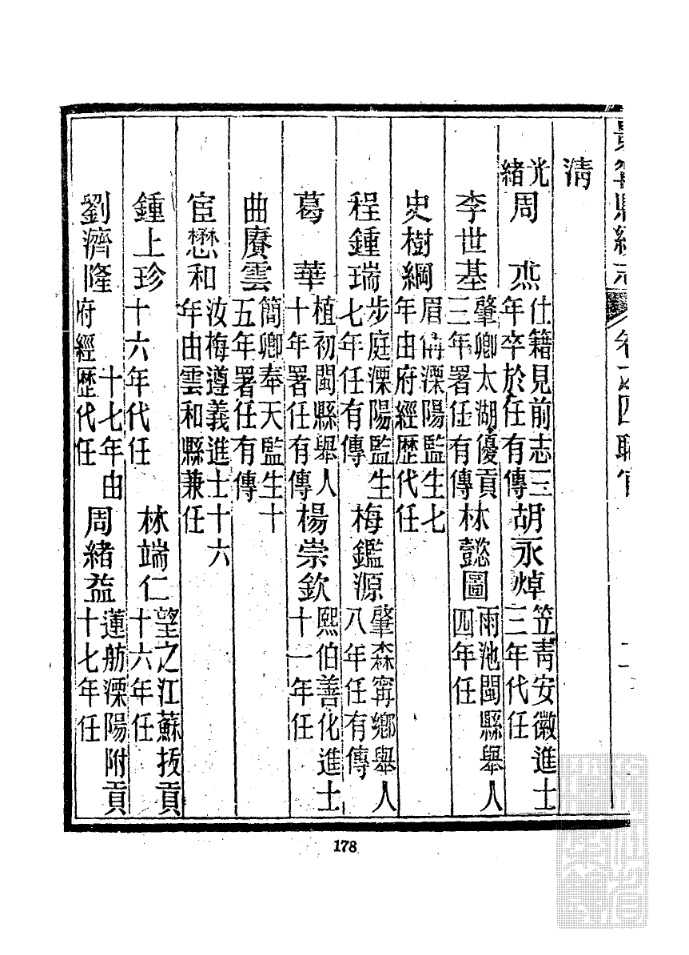 景寧縣續志 卷之四 職官 二
清
光緒 周 杰 仕籍見前志三年卒於任有傳 胡永焯 笠靑安徽進士三年代任
李世基 肇卿太湖優貢三年署任有傳 林懿圖 雨池閩縣舉人四年任
史樹綱 眉儕溧陽監生七年由府經歷代任
程鍾瑞 步庭溧陽監生七年任有傳 梅鑑源 肇森甯鄉舉人八年任有傳
葛 華 植初閩縣舉人十年署任有傳 楊崇欽 熙伯善化進士十一年任
曲賡雲 簡卿奉天監生十五年署任有傳
宦懋和 汝梅遵義進士十六年由雲和縣兼任
鍾上珍 十六年代任 林端仁 望之江蘇拔貢十六年任
劉濟隆 十七年由府經歷代任 周緒益 蓮舫溧陽附貢十七年任
178